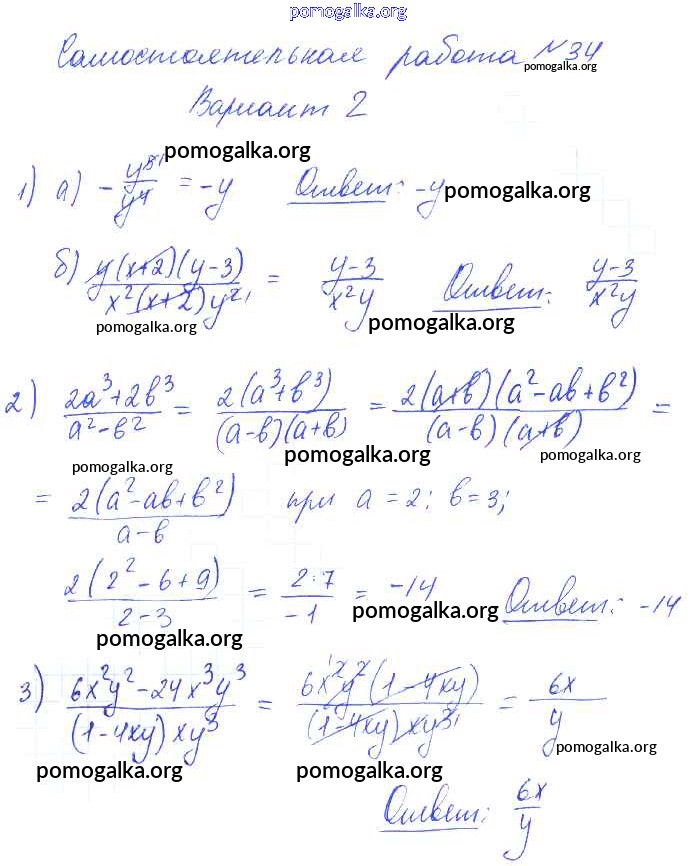 pomogalka.org
Самостоятельная работа №34
pomogalka.org
Вариант 2
pomogalka.org
1) а) -y⁵/y⁴ = -y Ответ: -y
pomogalka.org
б) y(x+2)(y-3)/x²(x+2)y² = y-3/x²y Ответ: y-3/x²y
pomogalka.org
pomogalka.org
2) 2a³+2b³/a²-b² = 2(a³+b³)/(a-b)(a+b) = 2(a+b)(a²-ab+b²)/(a-b)(a+b) =
pomogalka.org
pomogalka.org
pomogalka.org
= 2(a²-ab+b²)/a-b при a=2; b=3;
2(2²-6+9)/2-3 = 2·7/-1 = -14 Ответ: -14
pomogalka.org
pomogalka.org
3) 6x²y²-24x³y³/(1-4xy)xy³ = 6x²y²(1-4xy)/(1-4xy)xy³ = 6x/y
pomogalka.org
pomogalka.org
pomogalka.org
Ответ: 6x/y